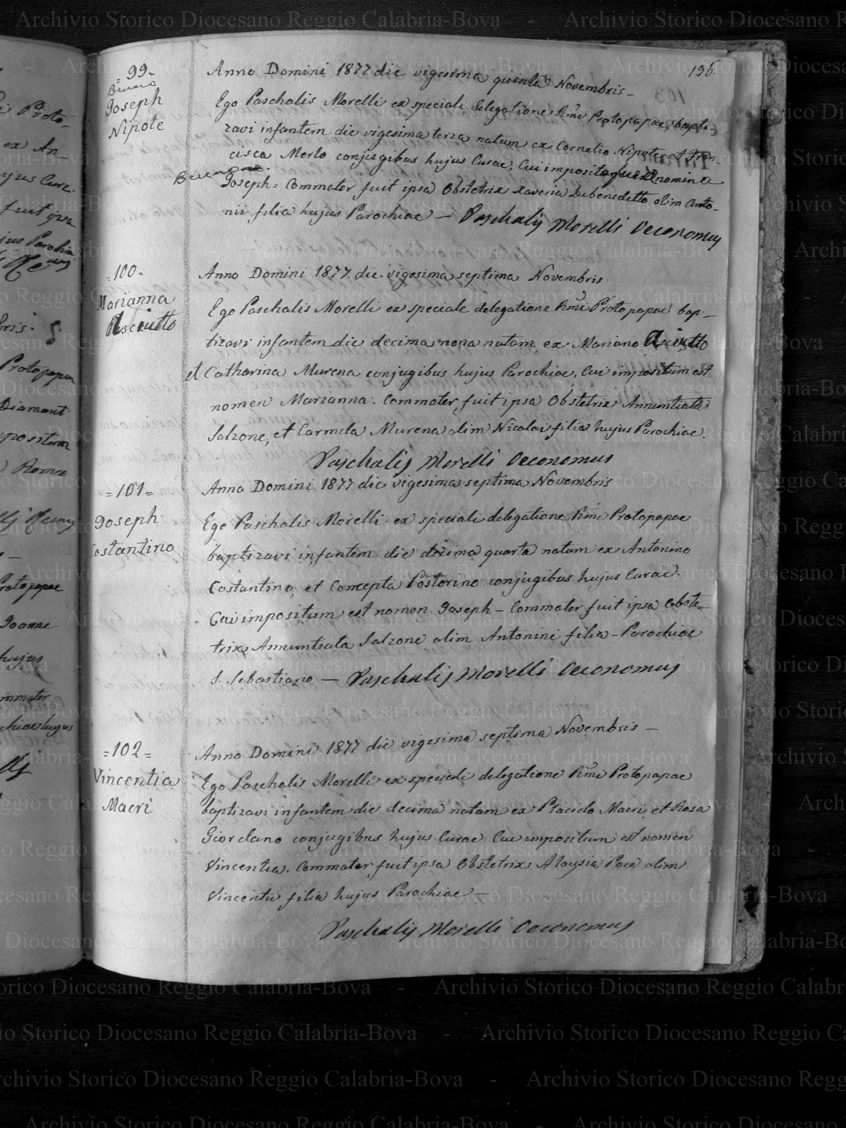 136
99.
Joseph
Nipote
Anno Domini 1877 die vigesima quinta Novembris -
Ego Paschalis Morelli ex speciali delegatione Rmi Protopapae bapti-
zavi infantem die vigesima terza natum ex Cornelio Nipote et Fran-
cisca Merlo conjugibus hujus Curae, Cui
Joseph - Commater fuit ipsa Obstetrix Xaveria Debenedetto olim Anto-
nii filia hujus Parochiae - Paschalis Morelli Oeconomus
=100=
Marianna
Asciutto
Anno Domini 1877 die vigesima septima Novembris
Ego Paschalis Morelli ex speciale delegatione Rmi Protopapae bap-
tizavi infantem die decima nona natam ex Mariano Asciutto
et Catharina Murena conjugibus hujus Parochiae, Cui impositum est
nomen Marianna. Commater fuit ipsa Obstetrix Annuntiata
Salzone, et Carmela Murena olim Nicolai filia hujus Parochiae.
Paschalis Morelli Oeconomus
=101=
Joseph
Costantino
Anno Domini 1877 die vigesima septima Novembris
Ego Paschalis Morelli ex speciali delegatione Rmi Protopapae
baptizavi infantem die decima quarta natum ex Antonino
Costantino, et Concepta Postorino conjugibus hujus Curae.
Cui impositum est nomen Joseph - Commater fuit ipsa Obste-
trix Annuntiata Salzone olim Antonini filia - Parochiae
S. Sebastiano - Paschalis Morelli Oeconomus
=102=
Vincentia
Macri
Anno Domini 1877 die vigesima septima Novembris -
Ego Paschalis Morelli ex speciali delegatione Rmi Protopapae
baptizavi infantem die decima natam ex Placido Macri, et Rosa
Giordano conjugibus hujus Curae Cui impositum est nomen
Vincentia. Commater fuit ipsa Obstetrix Aloysia Pace olim
Vincentii filia hujus Parochiae -
Paschalis Morelli Oeconomus
Archivio Storico Diocesano Reggio Calabria-Bova